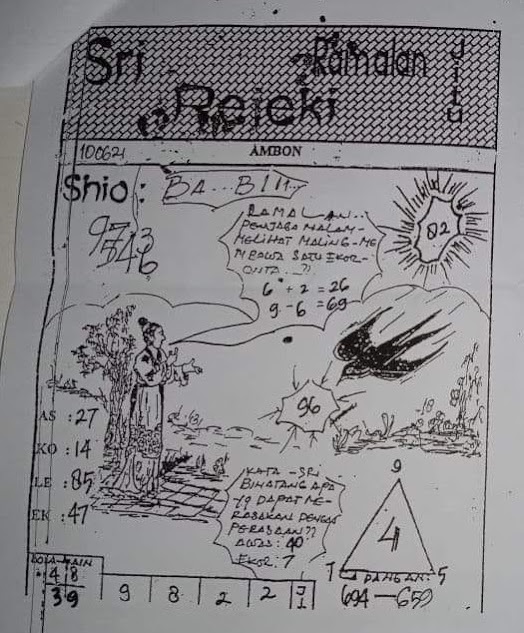 Sri Ramalan
Rejeki
Jitu
100621 AMBON
Shio : BA...BIII...
RAMALAN..
PENJAGA MALAM-
MELIHAT MALING-ME
MBAWA SATU EKOR-
ONTA...?!
6 + 2 = 26
9 - 6 = 69
82
96
AS : 27
KO : 14
LE : 85
EK : 47
KATA - SRI
BINATANG APA
YG DAPAT ME-
RASAKAN DENGAN
PERASAAN??
AWAS : 40
EKOR : 7
9
4
5
694 — 659
4 8
39 9 8 2 2